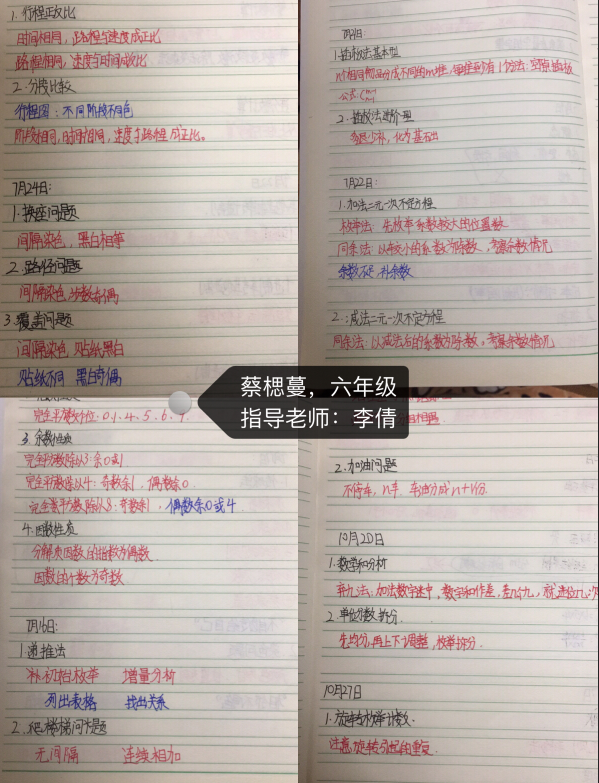 1.行程正反比
时间相同，路程与速度成正比
路程相同，速度与时间成反比
2.分段比较
行程图：不同阶段不同色
阶段相同，时间相同，速度与路程成正比。
7月24日:
1.换座问题
间隔染色，黑白相等
2.路径问题
间隔染色 步数奇偶
3.覆盖问题
间隔染色 贴纸黑白
贴纸不同 黑白奇偶
1.插板法基本型
公式
2.插板法进阶型
多退少补，化为基础
7月22日:
1.加法二元一次不定方程
枚举法：先枚举系数较大的位置数
同余法：以较小的系数为除数，考察余数情况
余数不足，补余数
2.减法二元一次不定方程
同余法：以减法后的系数为除数，考察余数情况
蔡楒蔓，六年级
指导老师：李倩
完全平方数个位：0、1、4、5、6、9.
3.余数性质
完全平方数除以3：余0或1.
完全平方数除以4：奇数余1，偶数余0
完全平方数除以8：奇数余1，偶数余0或4
4.因数性质
分解质因数的指数为偶数
因数的个数为奇数
7月16日:
1.递推法
补初始枚举 增量分析
列出表格 找出关系
2.爬楼梯问题
无间隔 连续相加
2.加油问题
不停车，n辛
10月20日
1.数字和分析
弃九法：加法数字谜中，数字和作差，差几个九，就进位几次
2.单位分数拆分
先均分，再上下调整，枚举拆分.
10月27日
1.旋转与枚举计数.
注意旋转引起的重复.